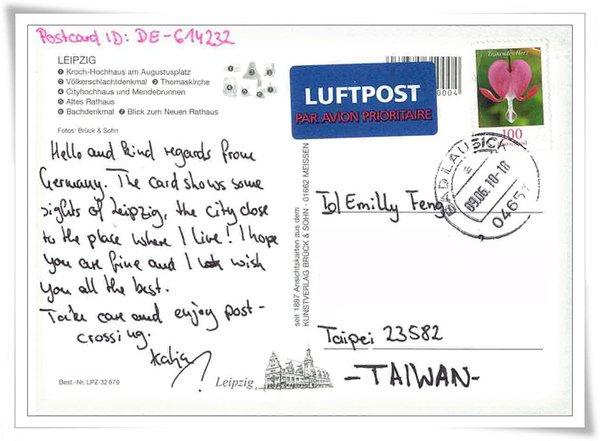 Postcard ID: DE-614232
LEIPZIG
1 Kroch-Hochhaus am Augustusplatz
2 Völkerschlachtdenkmal 3 Thomaskirche
4 Cityhochhaus und Mendebrunnen
5 Altes Rathaus
6 Bachdenkmal 7 Blick zum Neuen Rathaus
Fotos: Brück & Sohn
Hello and kind regards from
Germany. The card shows some
sights of Leipzig, the city close
to the place where I live! I hope
you are fine and I wish
you all the best.
Take care and enjoy post-
crossing.
Katja
Best.-Nr. LPZ 32 679
Leipzig
seit 1897 Ansichtskarten aus dem
KUNSTVERLAG BRÜCK & SOHN · 01662 MEISSEN
0004
LUFTPOST
PAR AVION PRIORITAIRE
Tränendes Herz
100
BAD LAUSICK
a
09.06.10-18
04651
To/ Emilly Feng
Taipei 23582
-TAIWAN-